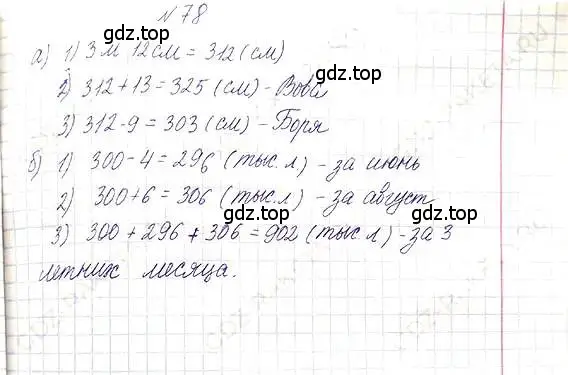 №78
а) 1) 3 м 12 см = 312 (см)
2) 312 + 13 = 325 (см) - Вова
3) 312 - 9 = 303 (см) - Боря
б) 1) 300 - 4 = 296 (тыс. л) - за июнь
2) 300 + 6 = 306 (тыс. л) - за август
3) 300 + 296 + 306 = 902 (тыс. л) - за 3
летних месяца.
gdz.top
gdz.top
gdz.top
gdz.top
gdz.top
gdz.top
gdz.top
gdz.top